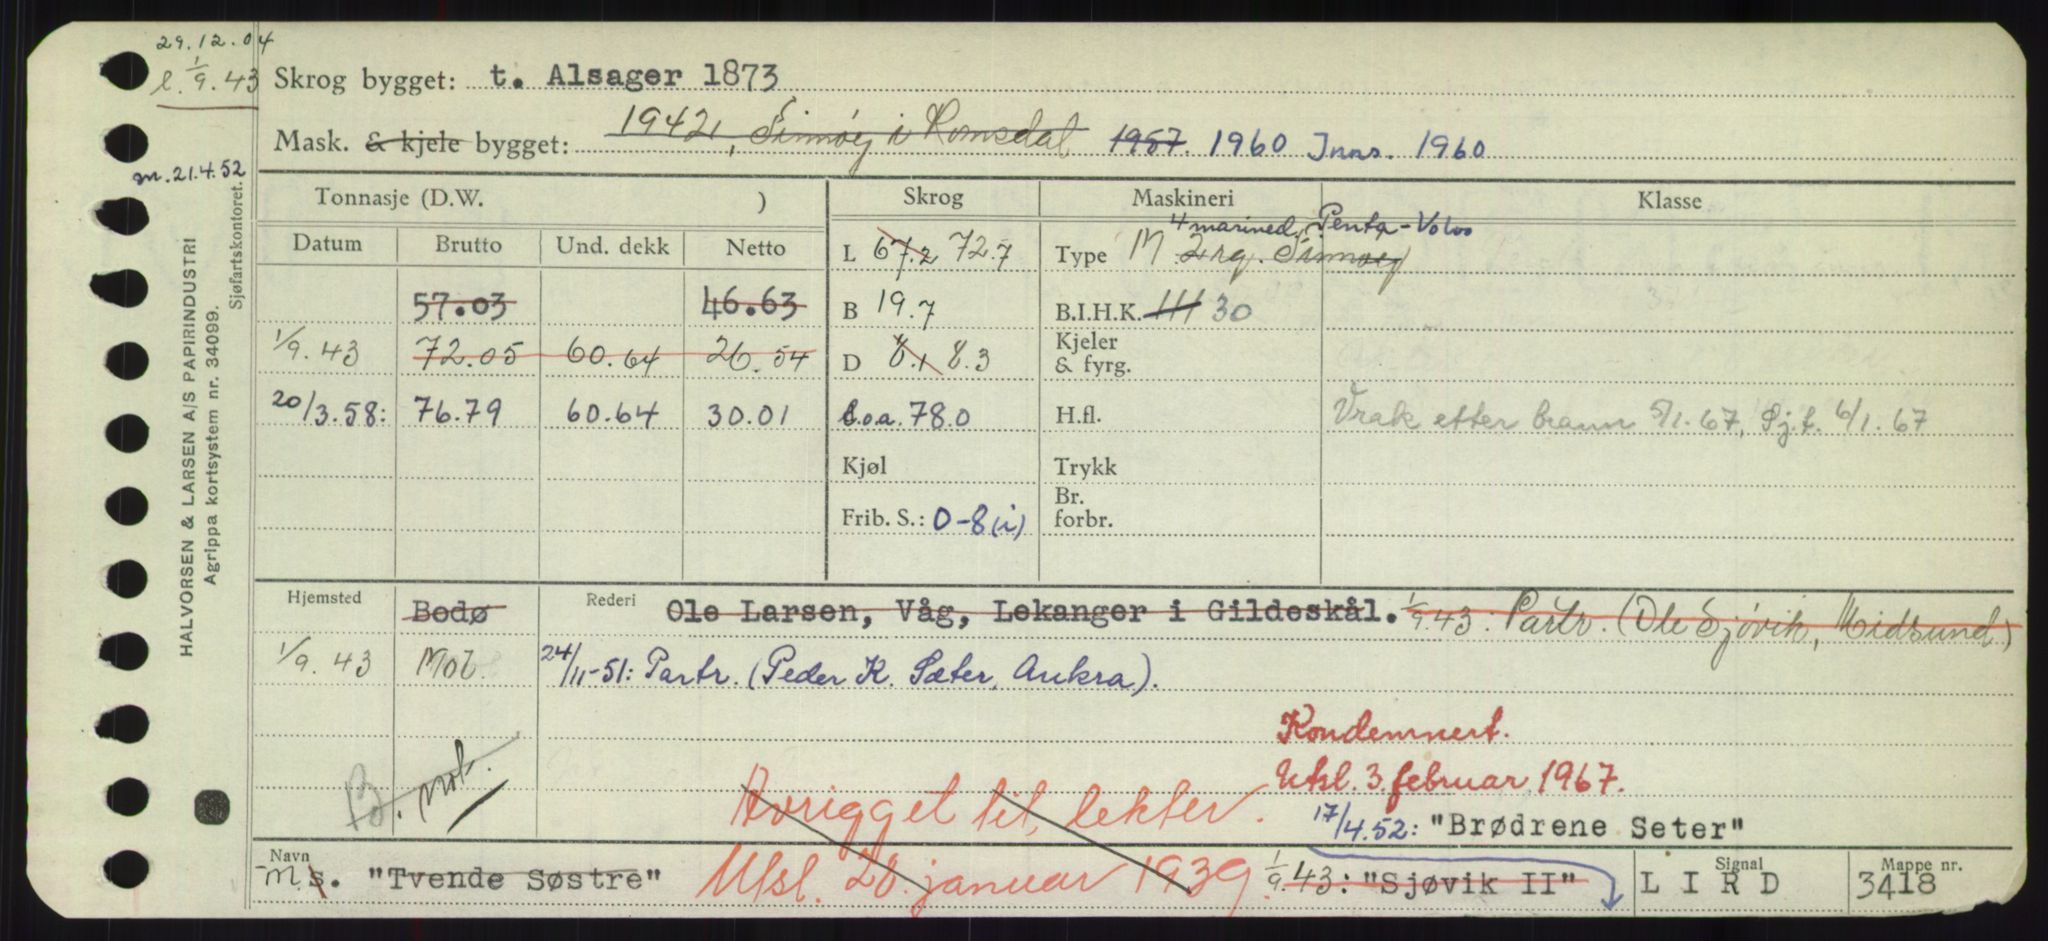 29.12.04
l. 1/9.43
m. 21.4.52
Sjøfartskontoret.
HALVORSEN & LARSEN A/S PAPIRINDUSTRI
Agrippa kortsystem nr. 34099.
Skrog bygget: t. Alsager 1873
Mask. & kjele bygget: 1942, i Romsdal 1957. 1960 Inns. 1960
Tonnasje (D.W. ) Skrog Maskineri Klasse
Datum Brutto Und. dekk Netto L 67.2 72.7 Type M 4 marined. Penta-Volvo
57.03 46.63 B 19.7 B.I.H.K. 111 30
1/9.43 72.05 60.64 26.54 D 8.1 8.3 Kjeler & fyrg.
20/3.58: 76.79 60.64 30.01 l.o.a. 78.0 H.fl. Vrak etter brann 5/1.67, Sj.t. 6/1.67
Kjøl Trykk
Frib. S.: 0-8(i) Br. forbr.
Hjemsted Bodø Rederi Ole Larsen, Våg, Lekanger i Gildeskål. 1/9.43: Partr. (Ole Sjøvik, Midsund)
1/9.43 Mol. 24/11-51: Partr. (Peder K. Sæter, Aukra).
Kondemnert.
Mol. Avrigget til lekter. Utsl. 3. februar 1967.
17/4.52: "Brødrene Seter"
Navn m s. "Tvende Søstre" Utsl. 20. januar 1939. 1/9.43: "Sjøvik II" Signal L I R D Mappe nr. 3418